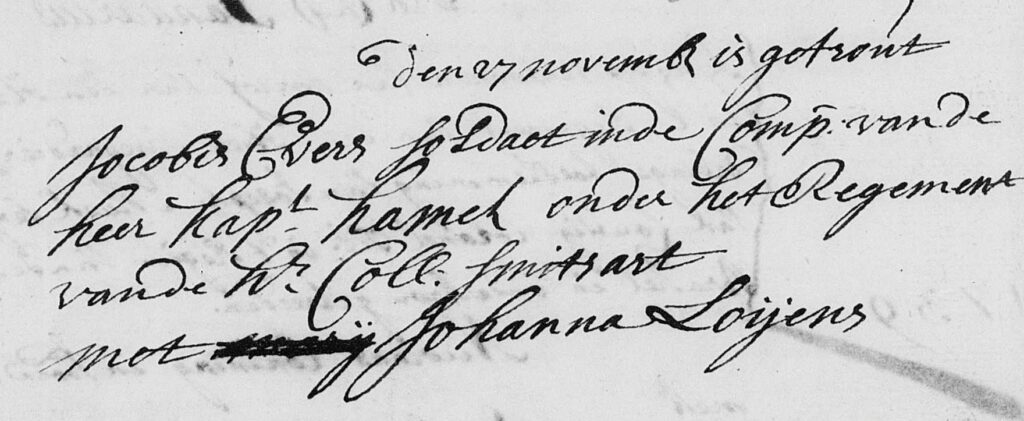 den 27 novemb is getrout
Jacobus Evers soldaet inde Comp. vande
heer kapt. hamel onder het Regement
vande hr. Coll. smitsart
met Johanna Loijens